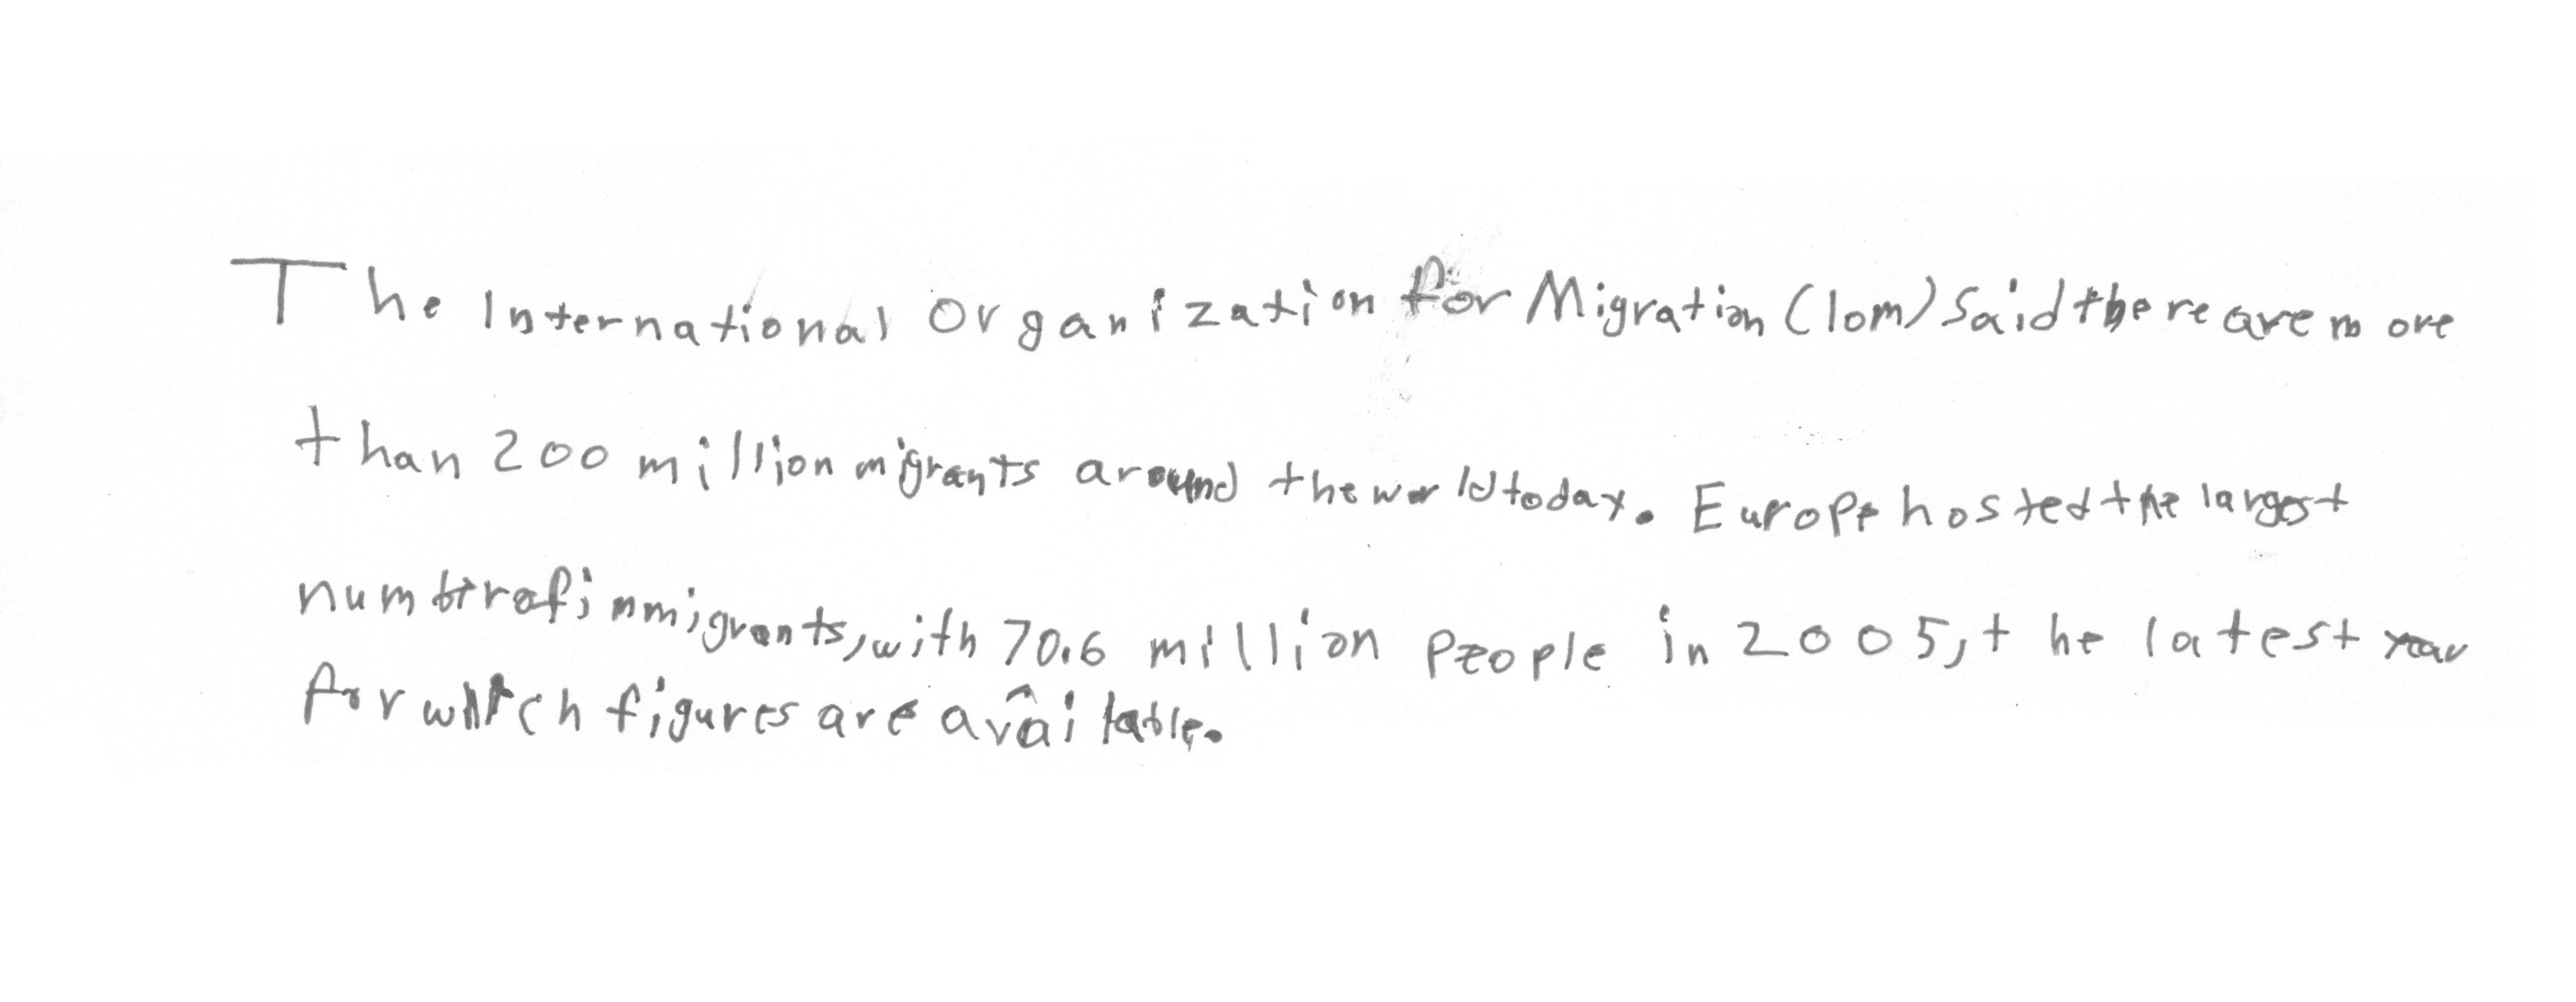 The International Organization for Migration (Iom) Said there are more
than 200 million migrants around the world today. Europe hosted the largest
number of immigrants, with 70.6 million People in 2005, the latest year
for which figures are available.